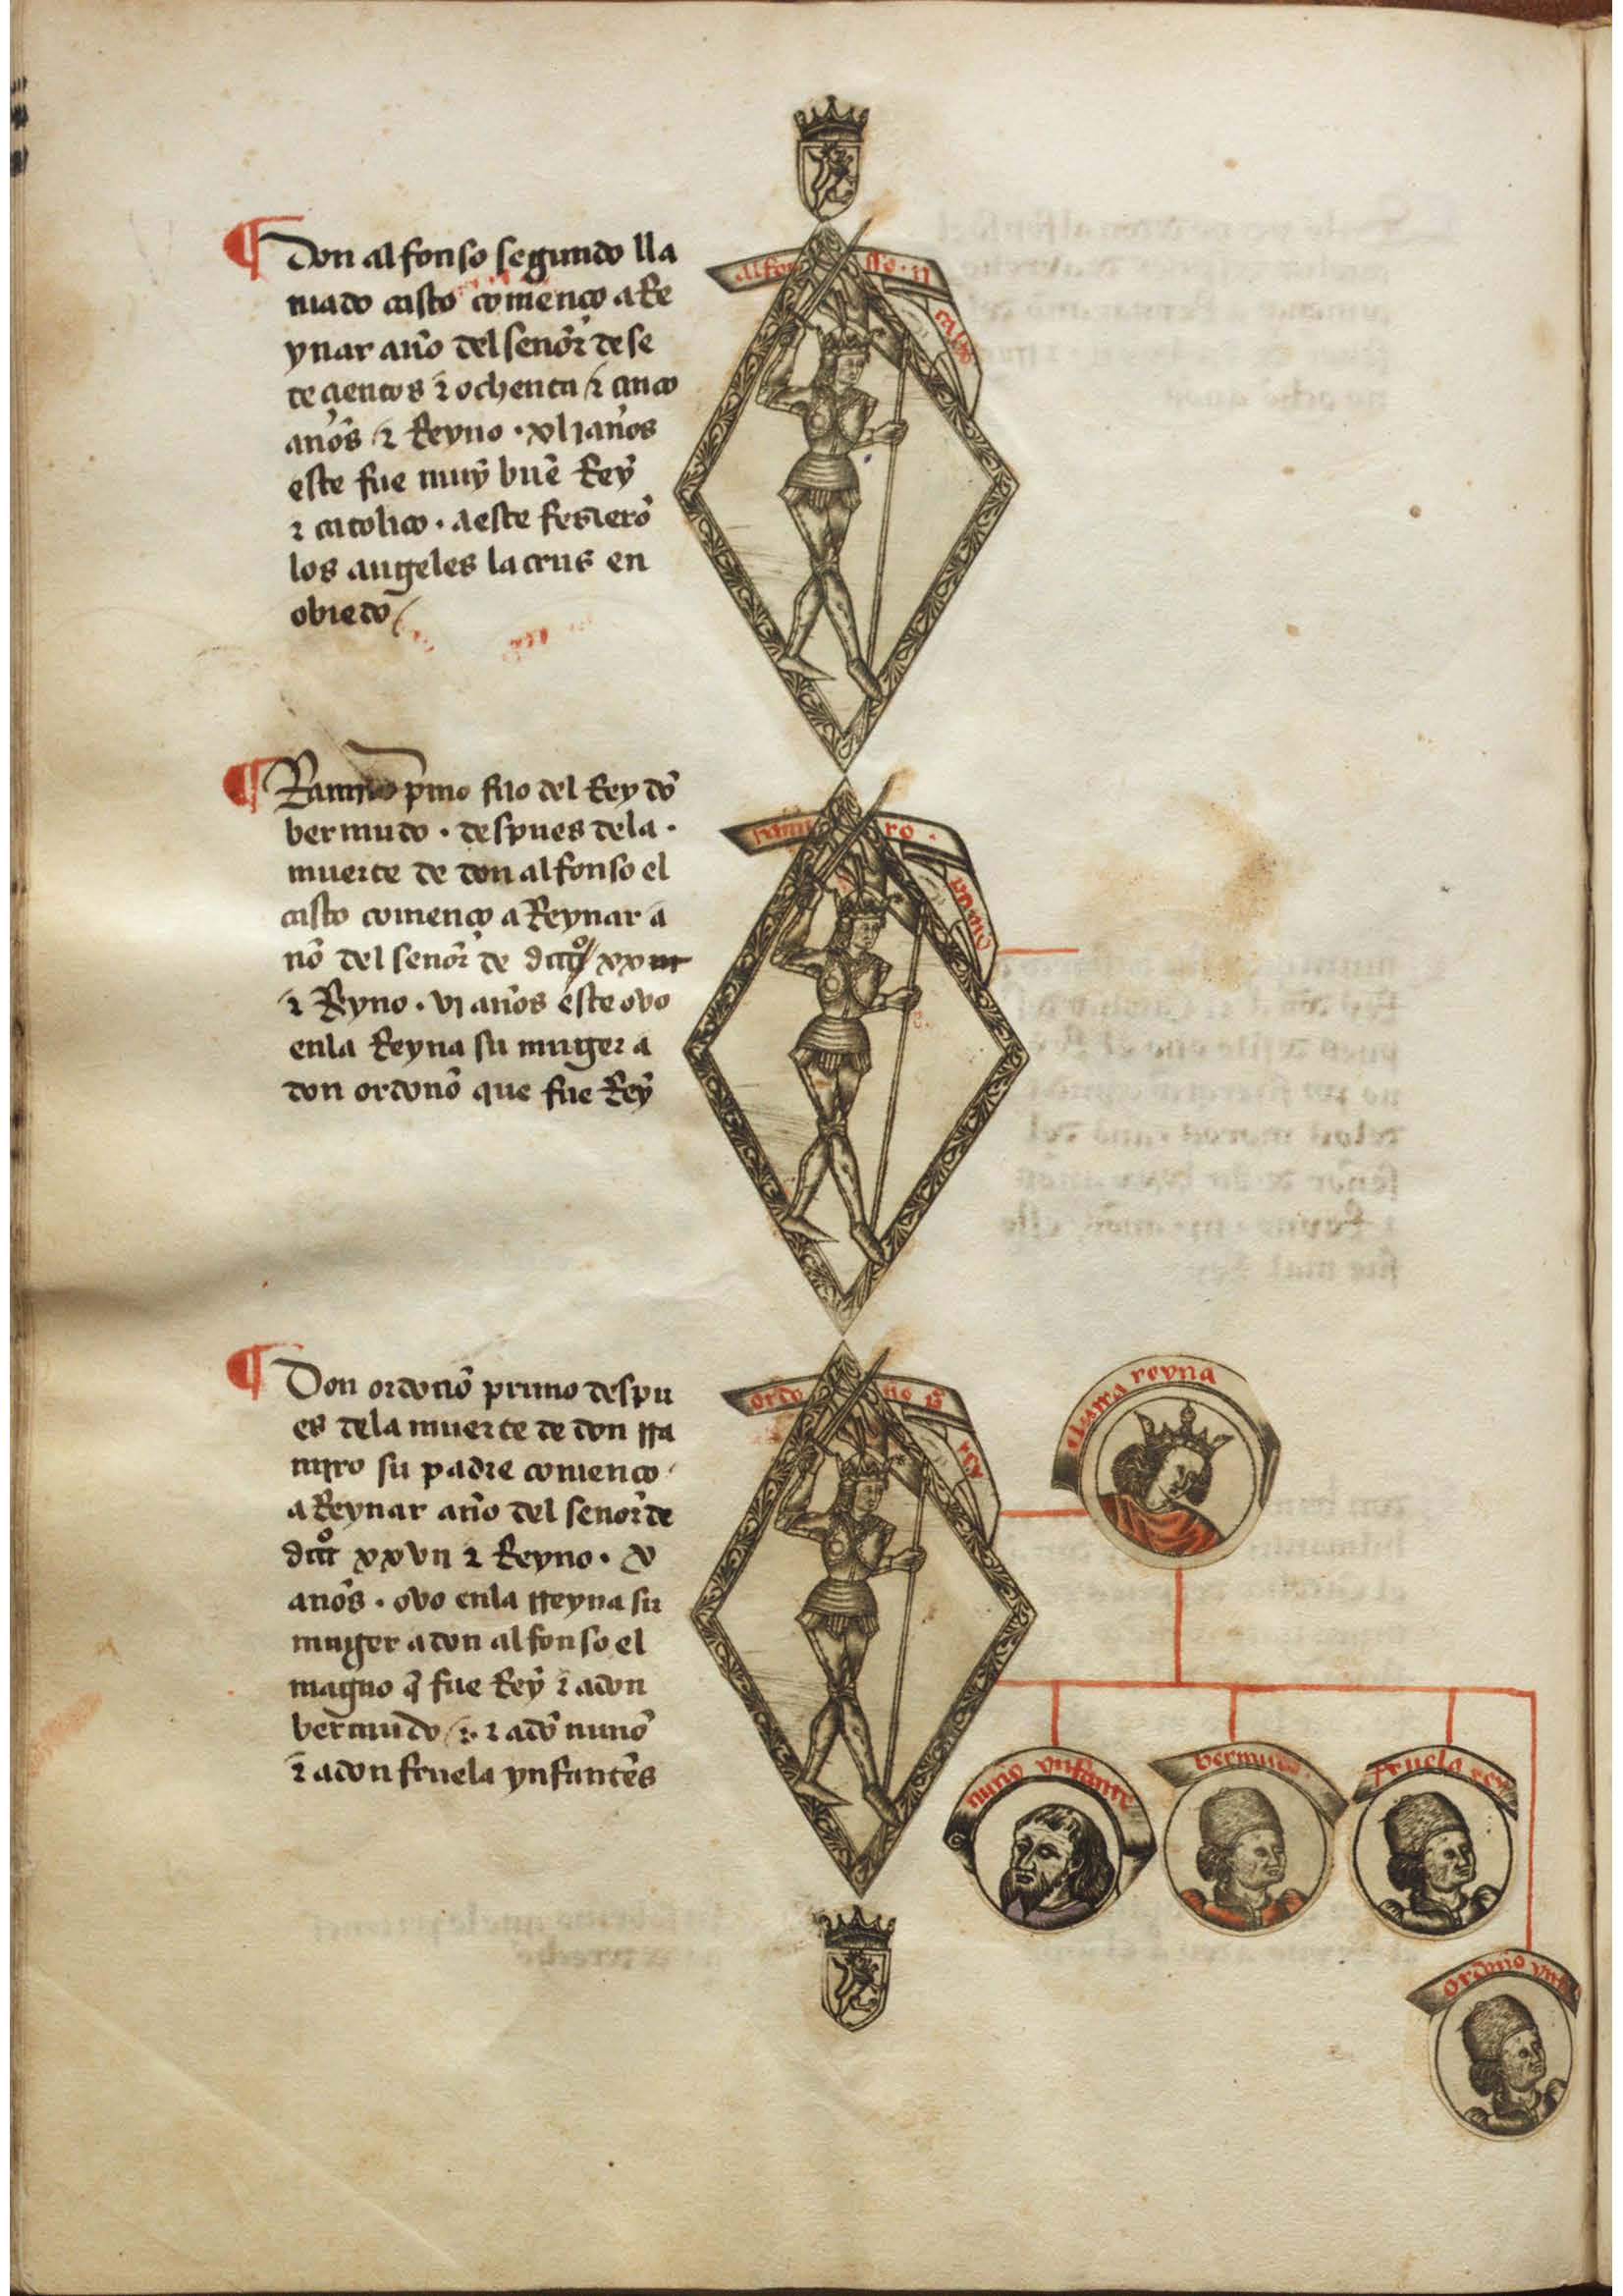 ¶ Don alfonso segundo lla
mado casto començo a Re
ynar año del señor de se
te cientos ⁊ ochenta ⁊ cinco
años ⁊ Reyno · xlj años
este fue muy buē Rey
⁊ catolico · a este fesierō
los angeles la crus en
obiedo
alfon sso · ij
casto
¶ Ramiro pmo fijo del Rey dō
bermudo · despues dela ·
muerte de don alfonso el
casto començo a Reynar a
ño del señor de dccc° xx
⁊ Reyno · vj años este ovo
enla Reyna su muger a
don ordoño que fue Rey
rami ro ·
primo
¶ Don ordoño primo despu
es dela muerte de don rra
miro su padre començo
a Reynar año del señor de
dccc° xxvij ⁊ Reyno · x
años · ovo enla rreyna su
muger a don alfonso el
magno q̄ fue Rey ⁊ adon
bermudo ⁊ adō nuño
⁊ adon fruela ynfantes
ordo ño pº
rey
reyna
nuno ynfante
bermudo
fruela rey
ordoño ynf